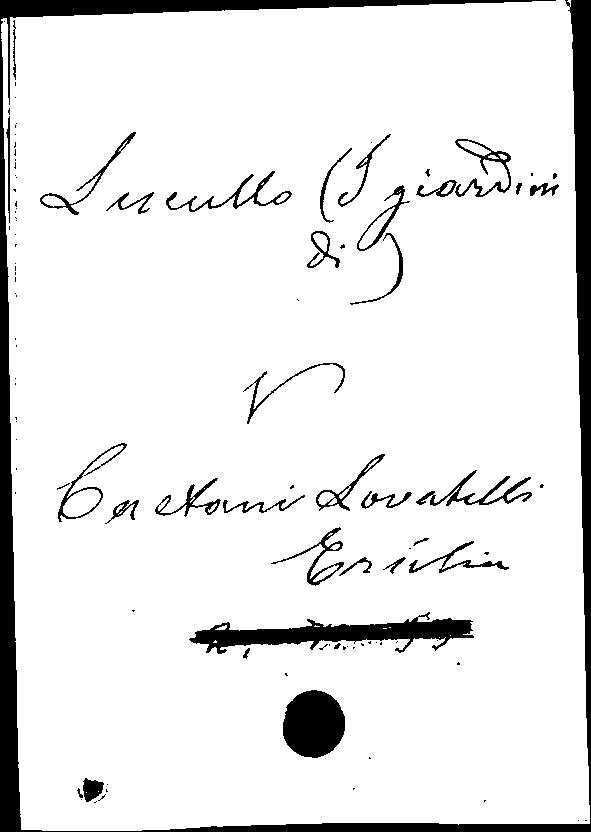 Lucullo (I giardini
di)
V
Caetani Lovatelli
Ersilia